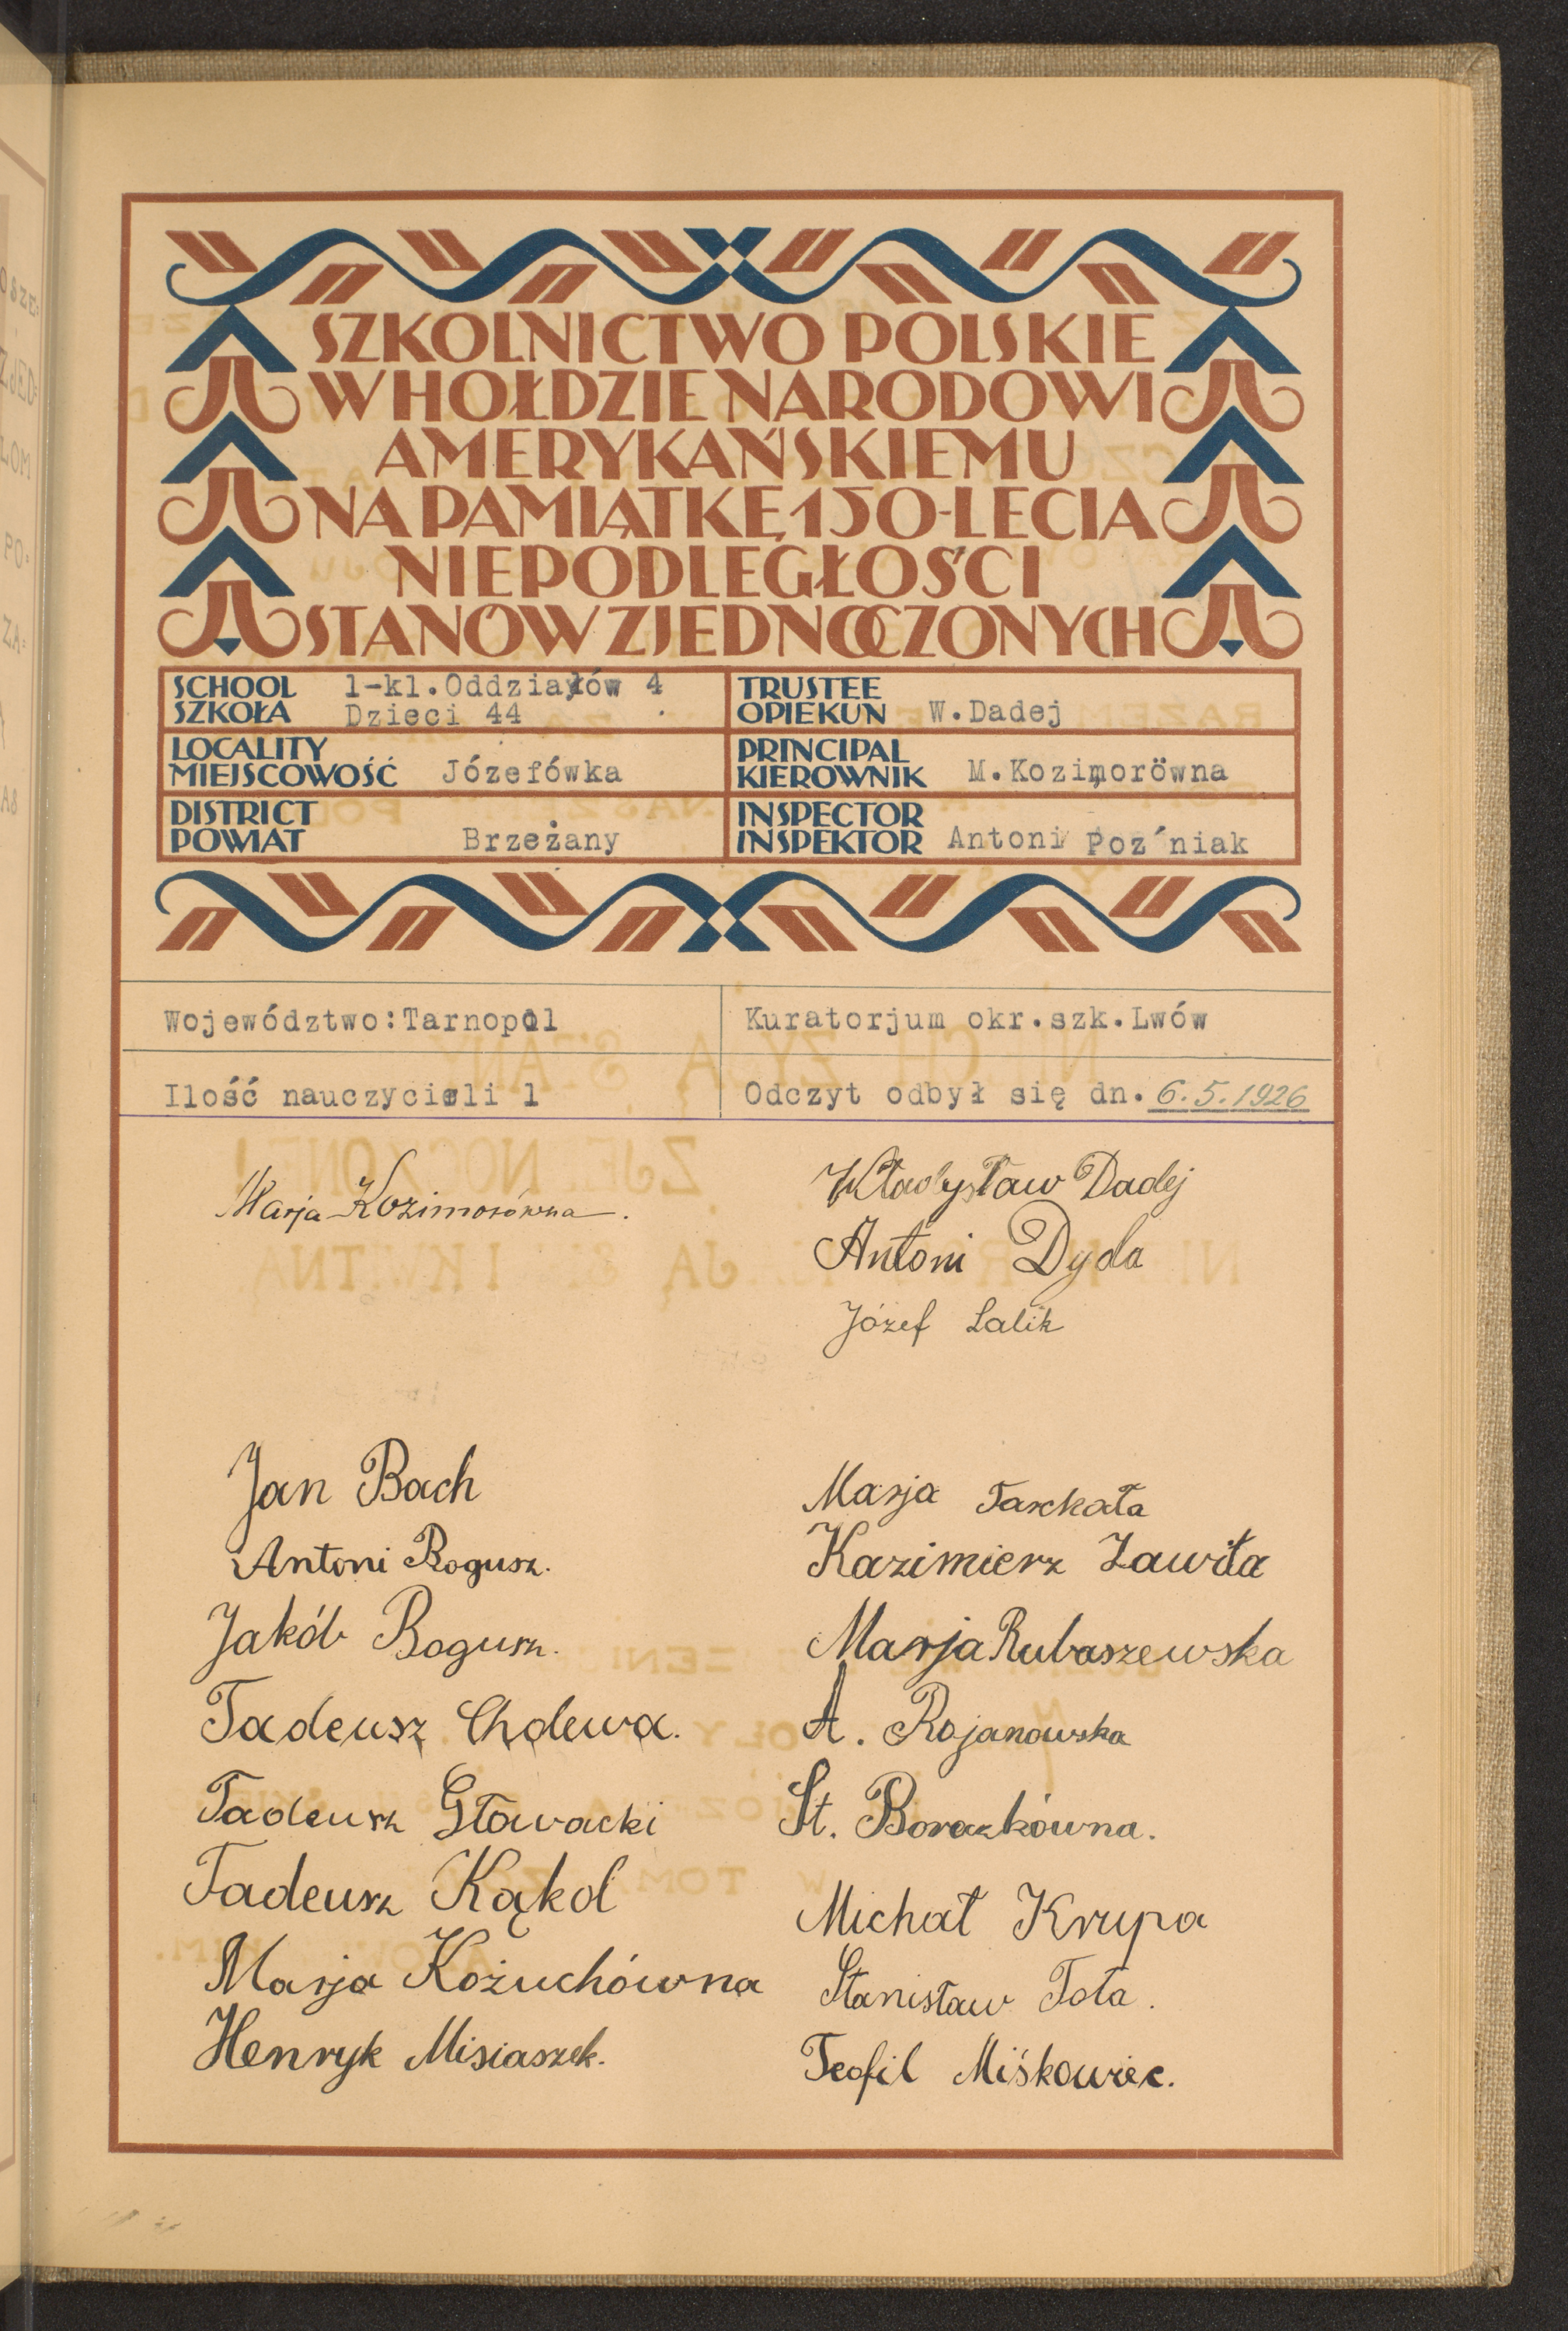 SZKOLNICTWO POLSKIE
W HOŁDZIE NARODOWI
AMERYKAŃSKIEMU
NA PAMIĄTKĘ 150-LECIA
NIEPODLEGŁOŚCI
STANÓW ZJEDNOCZONYCH
SCHOOL
SZKOŁA
1-kl.Oddziałów 4
Dzieci 44
TRUSTEE
OPIEKUN W.Dadej
LOCALITY
MIEJSCOWOŚĆ Józefówka
PRINCIPAL
KIEROWNIK M.Kozimorówna
DISTRICT
POWIAT Brzeżany
INSPECTOR
INSPEKTOR Antoni Poz´niak
Województwo:Tarnopol
Kuratorjum okr.szk.Lwów
Ilość nauczycieli 1
Odczyt odbył się dn. 6.5.1926
Marja Kozimorówna.
Władysław Dadej
Antoni Dyda
Józef Lalik
Jan Bach
Antoni Bogusz.
Jakób Bogusz.
Tadeusz Cholewa.
Tadeusz Głowacki
Tadeusz Kąkol
Marja Kożuchówna
Henryk Misiaszek.
Marja
Kazimierz Zawiła
Marja Rubaszewska
A. Rojanowska
St. Boraczkówna.
Michał Krupa
Stanisław Tota.
Teofil Miśkowiec.